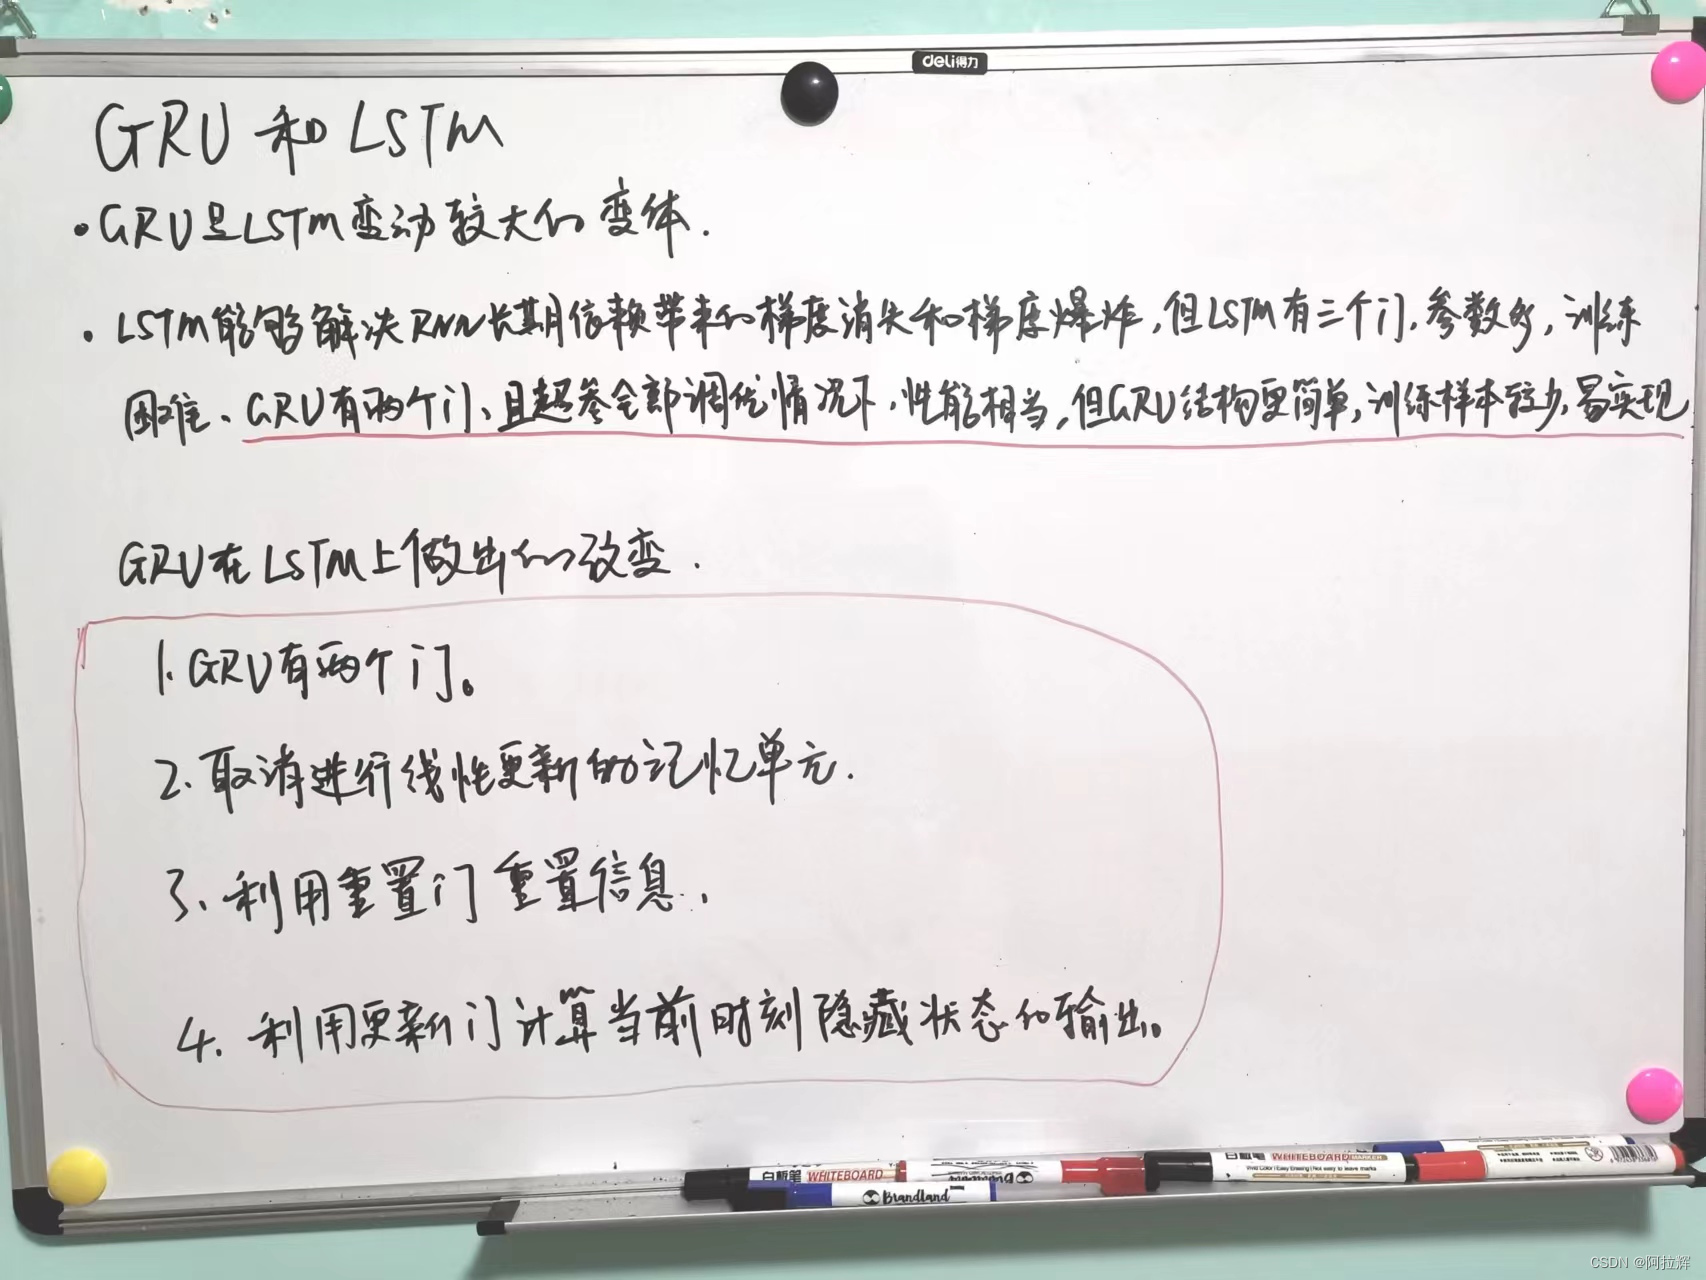 deli得力
GRU 和 LSTM
·GRU是LSTM变动较大的变体.
·LSTM能够解决RNN长期依赖带来的梯度消失和梯度爆炸,但LSTM有三个门,参数多,训练
困难、GRU有两个门、且超参全部调优情况下,性能相当,但GRU结构更简单,训练样本较少,易实现
GRU在LSTM上做出的改变.
1.GRU有两个门。
2.取消进行线性更新的记忆单元.
3、利用重置门重置信息.
4.利用更新门计算当前时刻隐藏状态的输出。
白板笔 WHITEBOARD
Brandland
白板笔 WHITEBOARD MARKER
Vivid Color | Easy Erasing | Not easy to leave marks
CSDN @阿拉辉